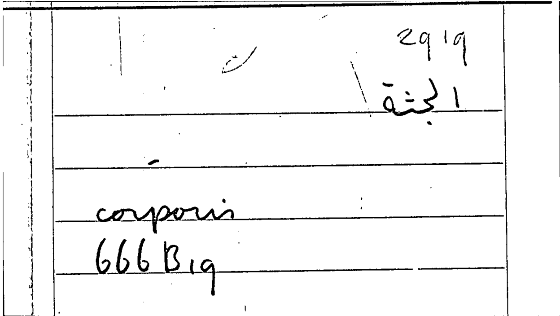 2919
الجثة
corporis
666 B 19